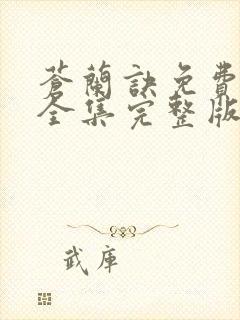 蒼蘭訣免費
全集完整版
武庫